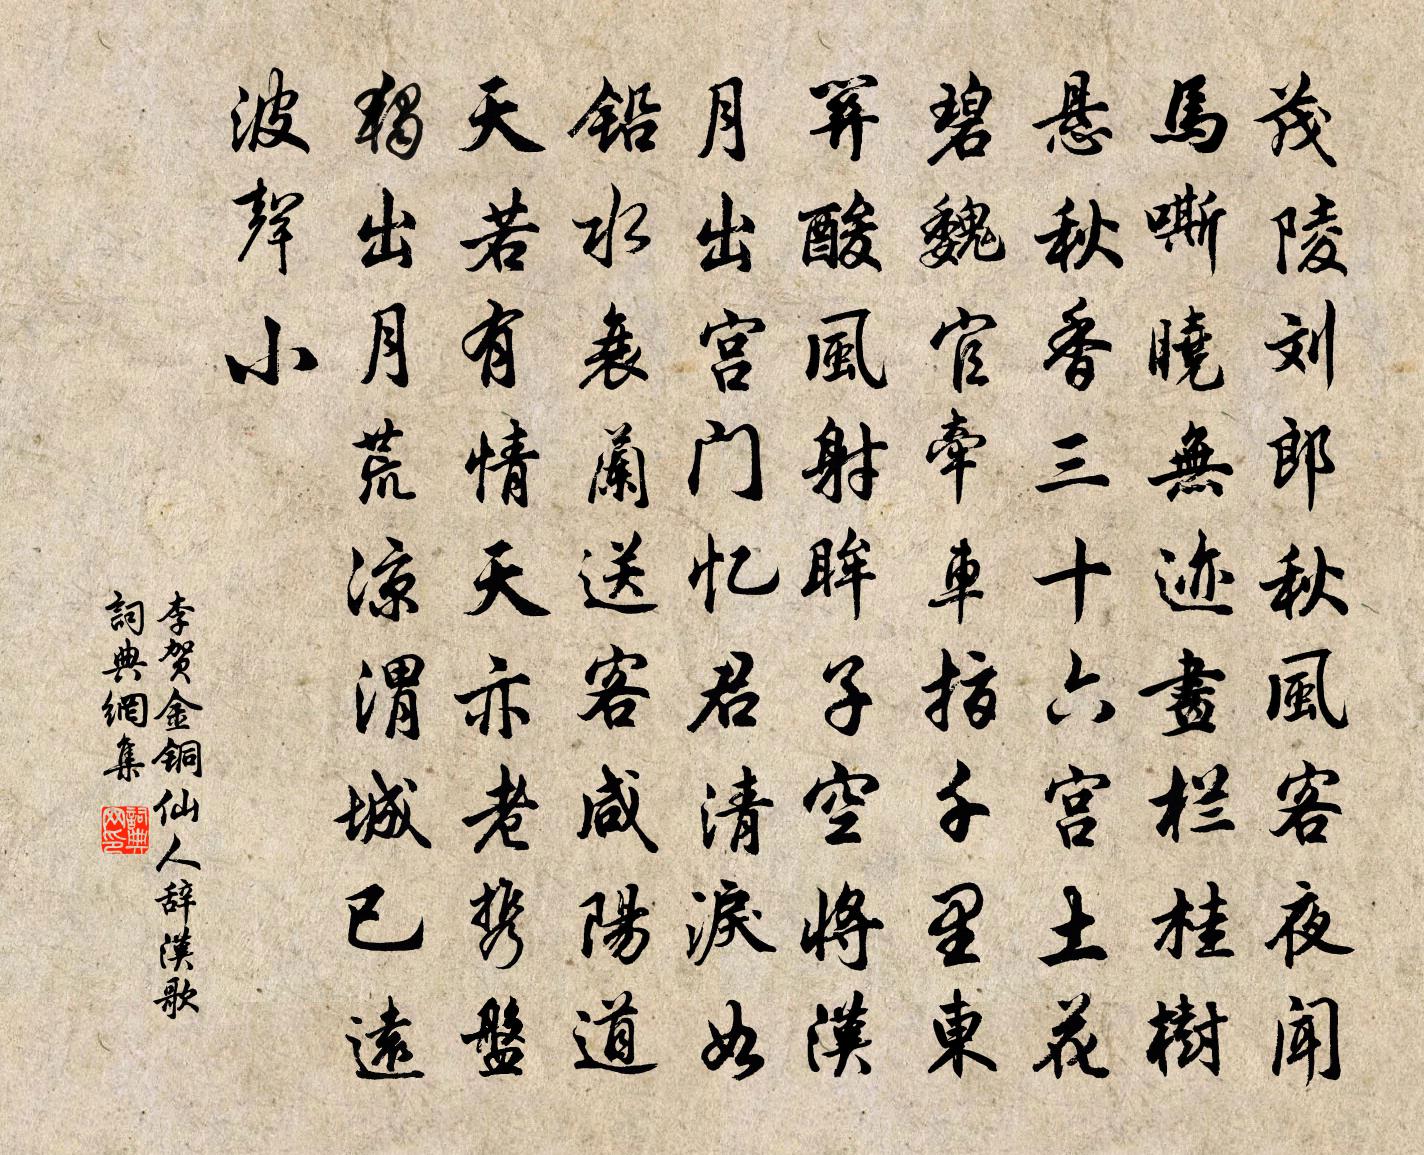 茂陵刘郎秋風客夜聞
馬嘶曉無迹畫栏桂樹
悬秋香三十六宫土花
碧魏官牽車指千里東
關酸風射眸子空将漢
月出宫门忆君清淚如
铅水衰蘭送客咸陽道
天若有情天亦老携盤
独出月荒凉渭城已遠
波聲小
李贺金铜仙人辞漢歌
詞典網集
詞典網印